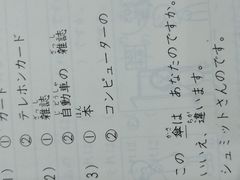 1) ① カード
② テレホンカード
2) ① 雑誌
② 自動車の雑誌
3) ① 本
② コンピューターの
この傘は あなたのですか。
いいえ、違います。
シュミットさんのです。